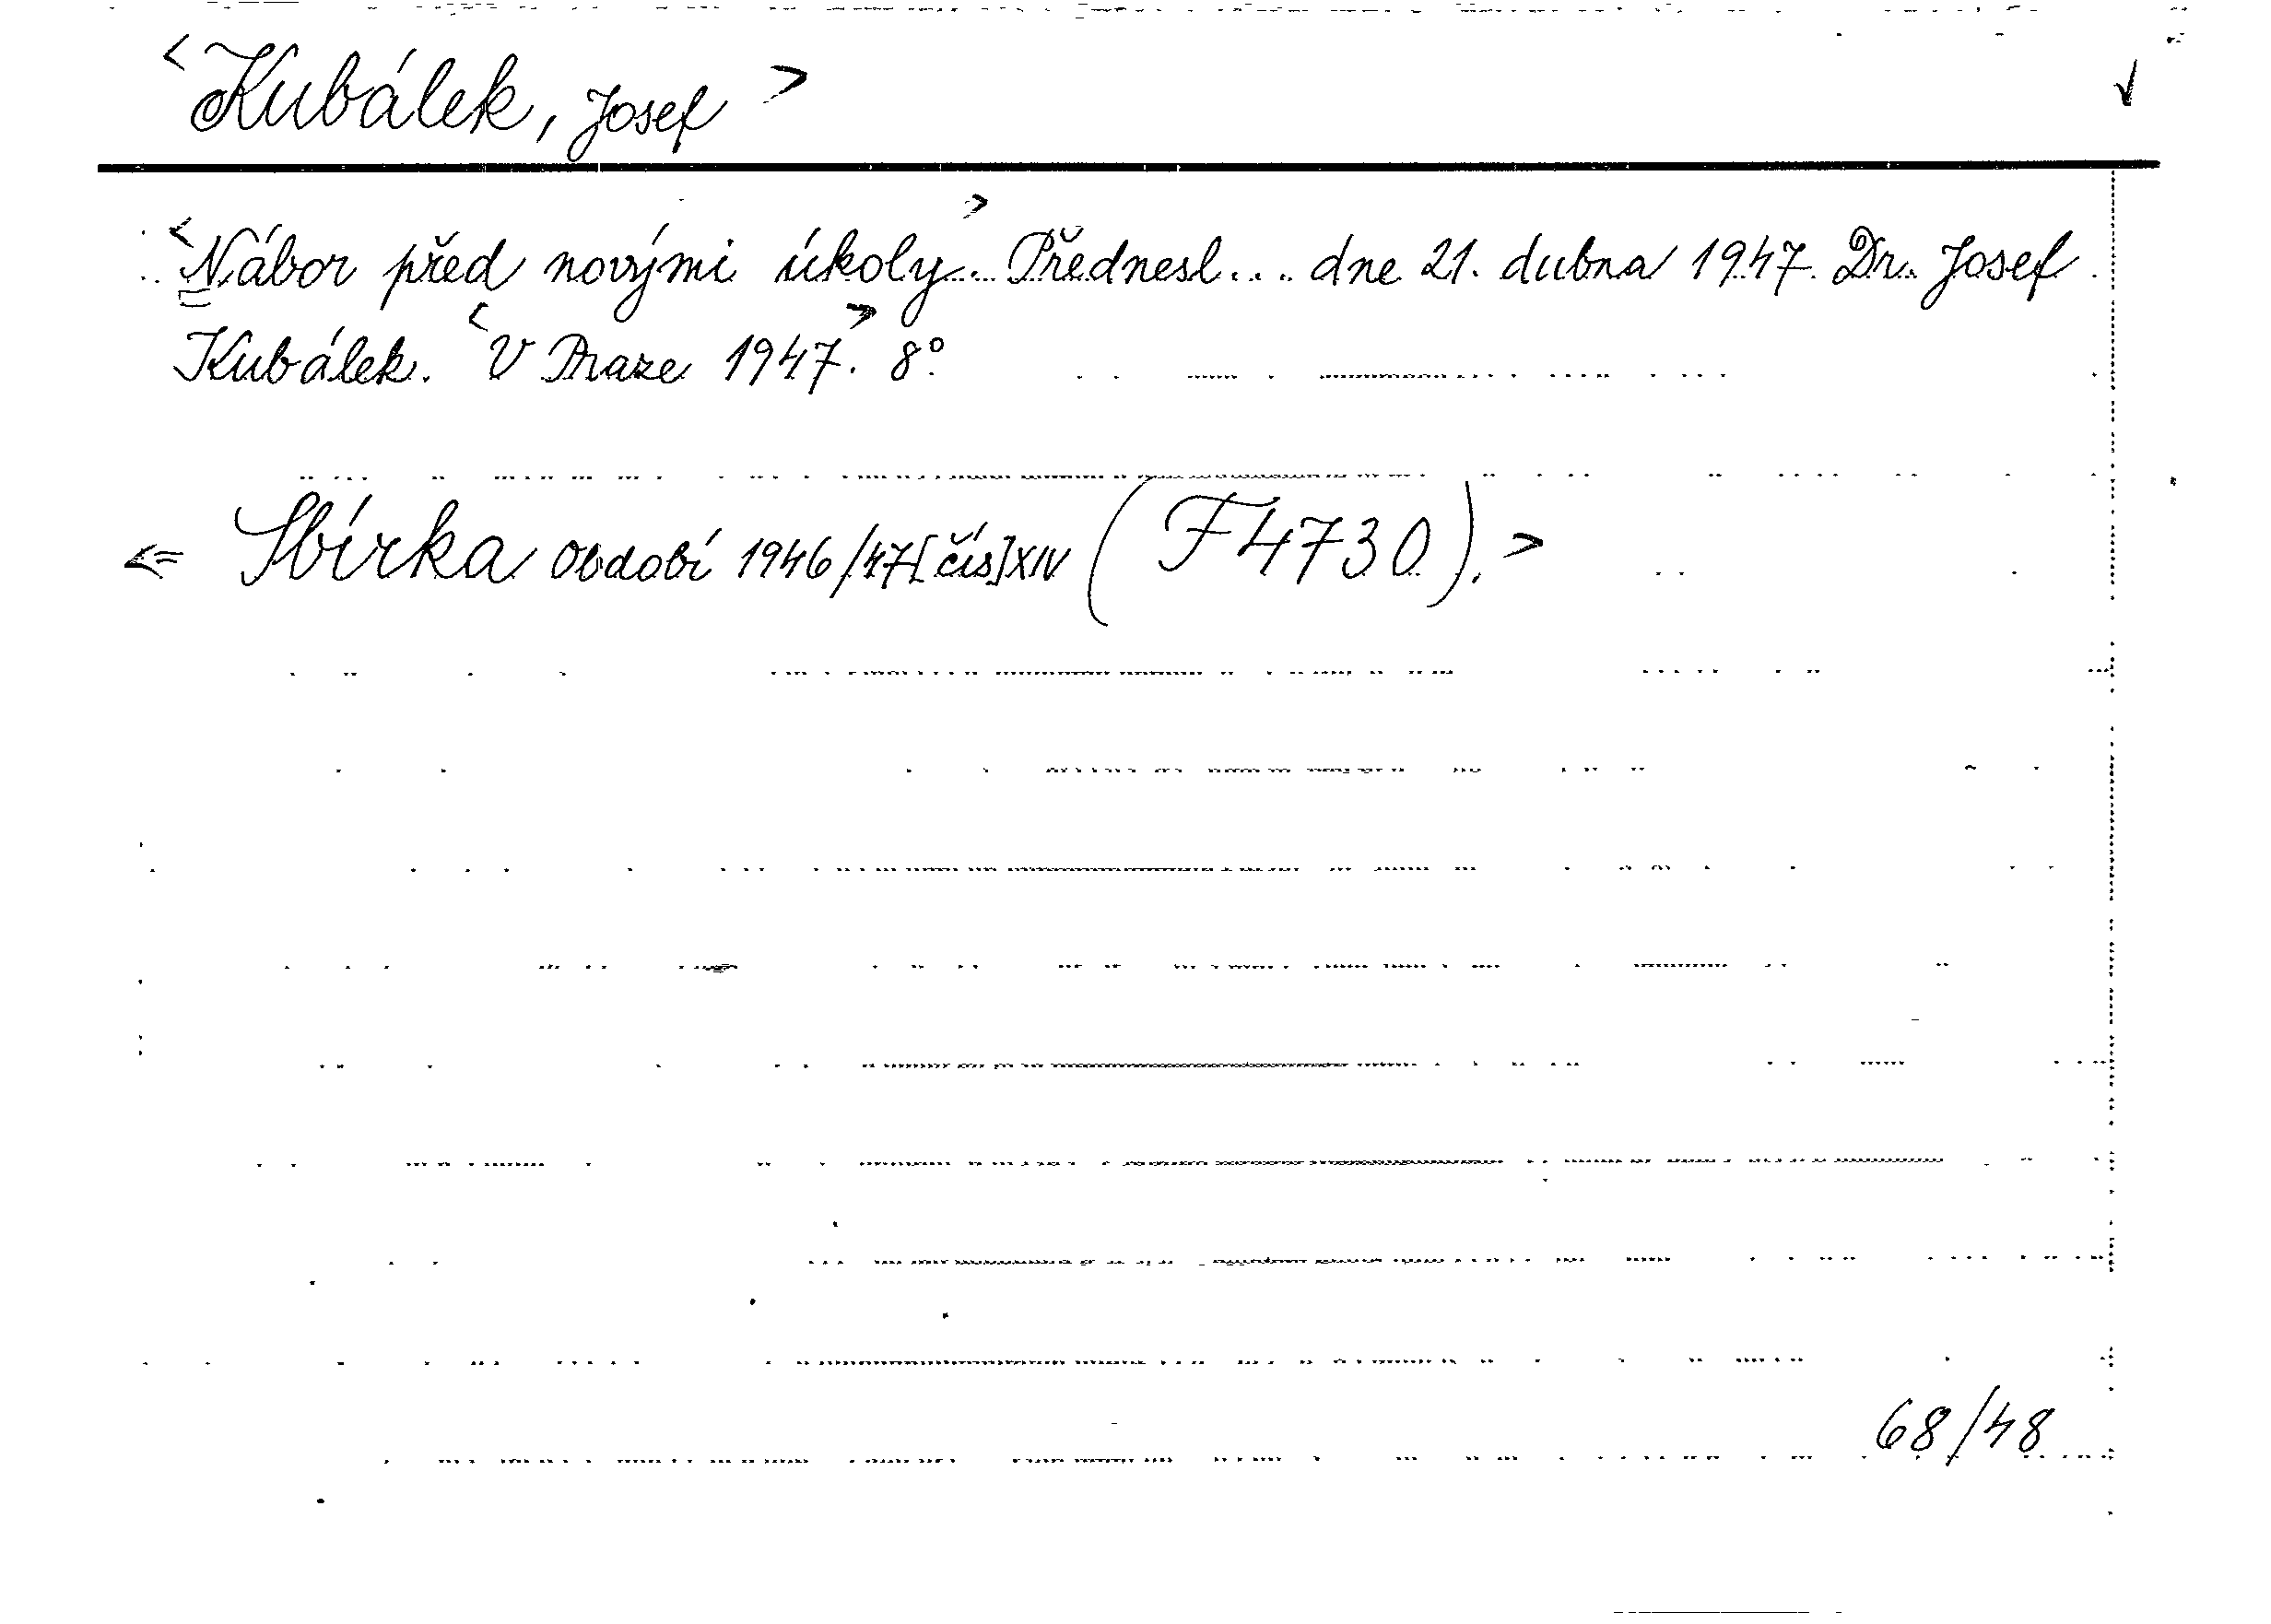 <Kubálek, Josef> ✓
<Nábor před novými úkoly.> Přednesl... dne 21. dubna 1947. Dr. Josef
Kubálek. <V Praze 1947.> 8°
<= Sbírka období 1946/47 [čís] XIV (F 4730).>
68/48